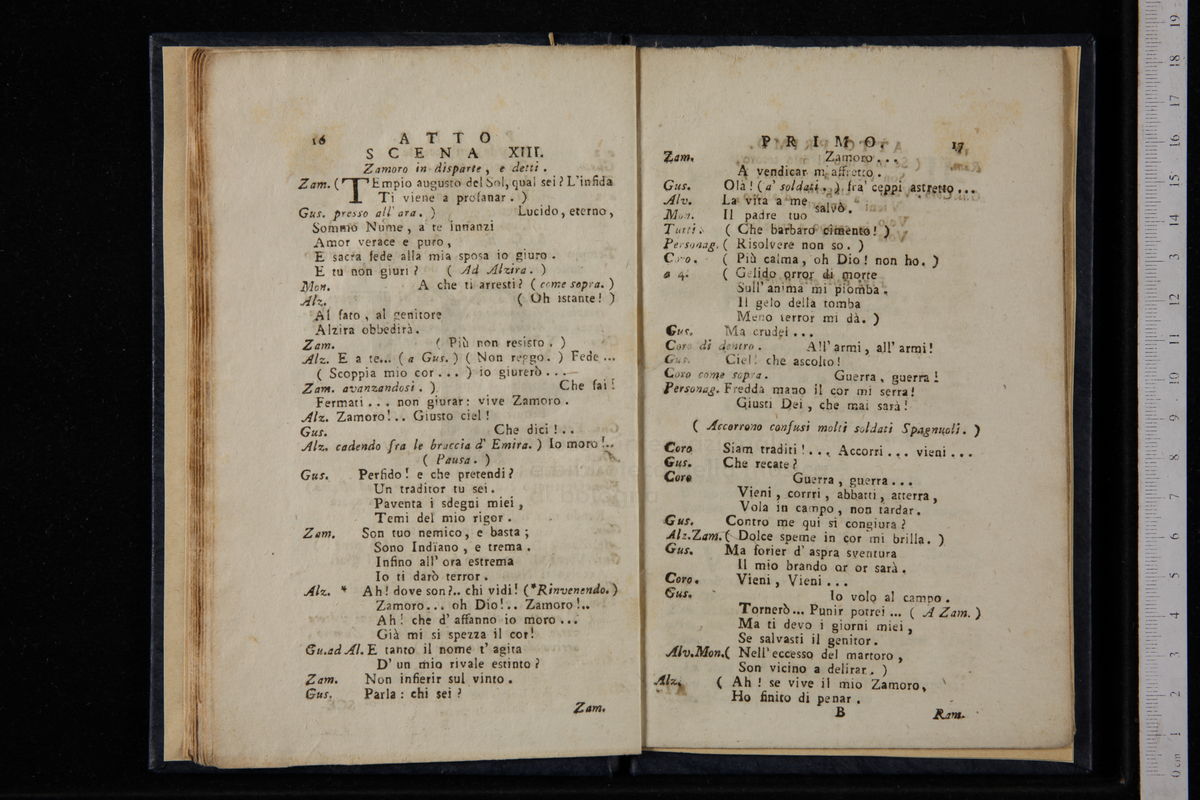 16 ATTO
SCENA XIII.
Zamoro in disparte, e detti.
Zam. ( TEmpio augusto del Sol, qual sei? L'infida
Ti viene a profanar. )
Gus. presso all' ara. ) Lucido, eterno,
Sommo Nume, a te innanzi
Amor verace e puro,
E sacra fede alla mia sposa io giuro.
E tu non giuri? ( Ad Alzira. )
Mon. A che ti arresti? ( come sopra. )
Alz. ( Oh istante! )
Al fato, al genitore
Alzira obbedirà.
Zam. ( Più non resisto. )
Alz. E a te... ( a Gus. ) ( Non reggo. ) Fede...
( Scoppia mio cor... ) io giurerò...
Zam. avanzandosi. ) Che fai!
Fermati... non giurar: vive Zamoro.
Alz. Zamoro!.. Giusto ciel!
Gus. Che dici!..
Alz. cadendo fra le braccia d' Emira. ) Io moro!..
( Pausa. )
Gus. Perfido! e che pretendi?
Un traditor tu sei.
Paventa i sdegni miei,
Temi del mio rigor.
Zam. Son tuo nemico, e basta;
Sono Indiano, e trema.
Infino all' ora estrema
Io ti darò terror.
Alz. * Ah! dove son?.. chi vidi! (*Rinvenendo.)
Zamoro... oh Dio!.. Zamoro!..
Ah! che d' affanno io moro...
Già mi si spezza il cor!
Gu.ad Al. E tanto il nome t' agita
D' un mio rivale estinto?
Zam. Non infierir sul vinto.
Gus. Parla: chi sei?
Zam.
PRIMO. 17
Zam. Zamoro...
A vendicar m' affretto.
Gus. Olà! ( a' soldati. ) fra' ceppi astretto...
Alv. La vita a me salvò.
Mon. Il padre tuo
Tutti. ( Che barbaro cimento! )
Personag. ( Risolvere non so. )
Coro. ( Più calma, oh Dio! non ho. )
a 4. ( Gelido orror di morte
Sull' anima mi piomba,
Il gelo della tomba
Meno terror mi dà. )
Gus. Ma crudei...
Coro di dentro. All' armi, all' armi!
Gus. Ciel! che ascolto!
Coro come sopra. Guerra, guerra!
Personag. Fredda mano il cor mi serra!
Giusti Dei, che mai sarà!
( Accorrono confusi molti soldati Spagnuoli. )
Coro Siam traditi!... Accorri... vieni...
Gus. Che recate?
Coro Guerra, guerra...
Vieni, corrri, abbatti, atterra,
Vola in campo, non tardar.
Gus. Contro me qui si congiura?
Alz.Zam. ( Dolce speme in cor mi brilla. )
Gus. Ma forier d' aspra sventura
Il mio brando or or sarà.
Coro. Vieni, Vieni...
Gus. Io volo al campo.
Tornerò... Punir potrei... ( A Zam. )
Ma ti devo i giorni miei,
Se salvasti il genitor.
Alv.Mon. ( Nell' eccesso del martoro,
Son vicino a delirar. )
Alz. ( Ah! se vive il mio Zamoro,
Ho finito di penar.
B Ram.